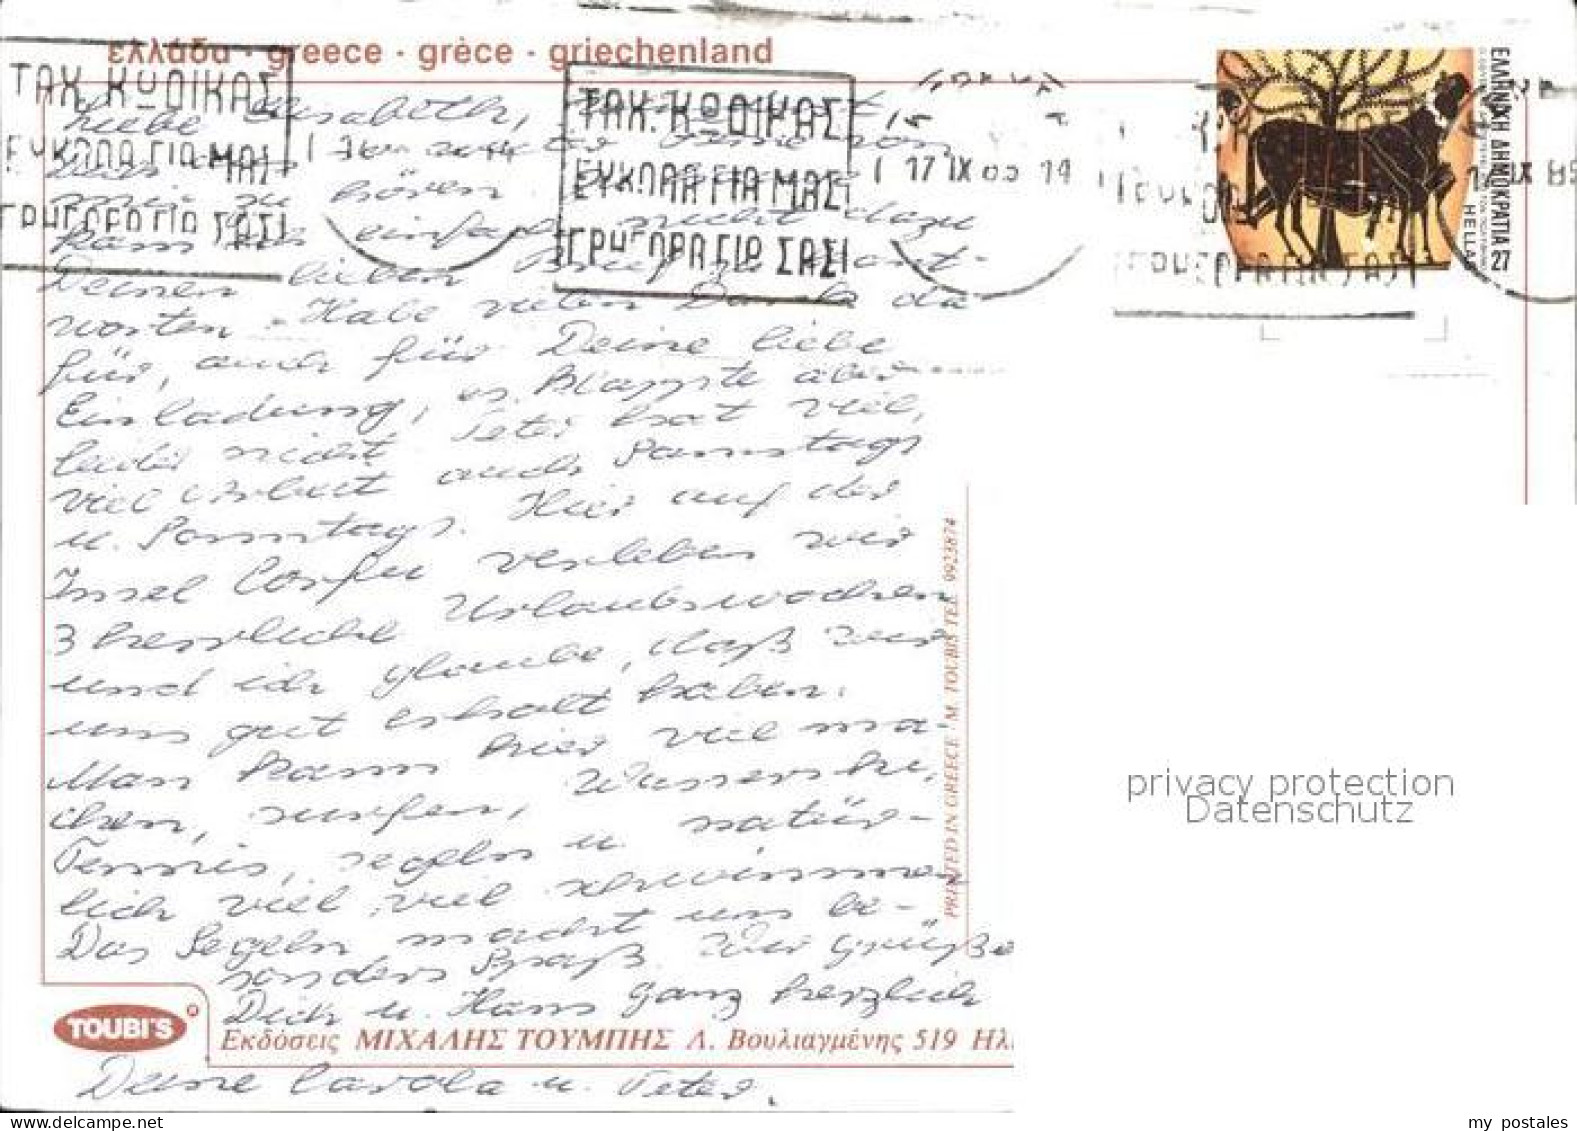 ελλάδα · greece · grèce · griechenland
ΤΑΧ. ΚΩΔΙΚΑΣ
ΕΥΚΟΛΑ ΓΙΑ ΜΑΣ!
ΓΡΗΓΟΡΑ ΓΙΑ ΣΑΣ!
ΤΑΧ. ΚΩΔΙΚΑΣ
ΕΥΚΟΛΑ ΓΙΑ ΜΑΣ!
ΓΡΗΓΟΡΑ ΓΙΑ ΣΑΣ!
17 IX 14
ΕΛΛΗΝΙΚΗ ΔΗΜΟΚΡΑΤΙΑ 27
HELLAS
Liebe Elisabeth,
zu hören
kam ich einfach nicht dazu
Deinen lieben Brief zu beant-
worten. Habe vielen Dank da
für, auch für Deine liebe
Einladung, es klappte aber
leider nicht Peter hat viel,
viel Arbeit auch Samstags
u. Sonntags. Hier auf der
Insel Corfu verleben wir
3 herrliche Urlaubswochen
und ich glaube, daß wir
uns gut erholt haben.
Man kann hier viel ma-
chen, surfen, Wasserski,
Tennis, segeln u. natür-
lich viel, viel schwimmen
Das Segeln macht uns be-
sonders Spaß. Wir grüßen
Dich u. Hans ganz herzlich
Deine Carola u. Peter.
PRINTED IN GREECE M. TOUBIS TEL 9923874
TOUBI'S
Εκδόσεις ΜΙΧΑΛΗΣ ΤΟΥΜΠΗΣ Λ. Βουλιαγμένης 519 Ηλ
privacy protection
Datenschutz
my postales
www.delcampe.net